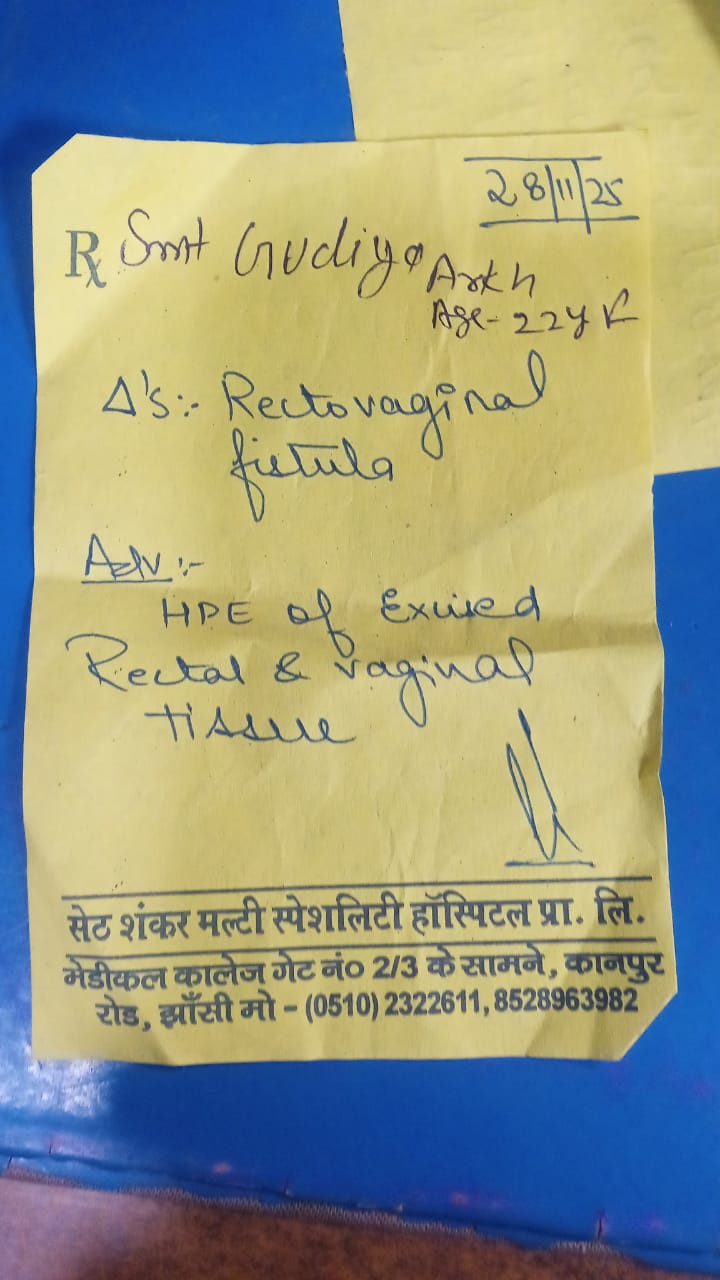 28/11/25
Rx Smt Gudiya Arkh
Age - 22y F
Δ's :- Rectovaginal
fistula
Adv :-
HPE of Excised
Rectal & vaginal
tissue
सेठ शंकर मल्टी स्पेशलिटी हॉस्पिटल प्रा. लि.
मेडीकल कालेज गेट नं० 2/3 के सामने, कानपुर
रोड, झाँसी मो - (0510) 2322611, 8528963982